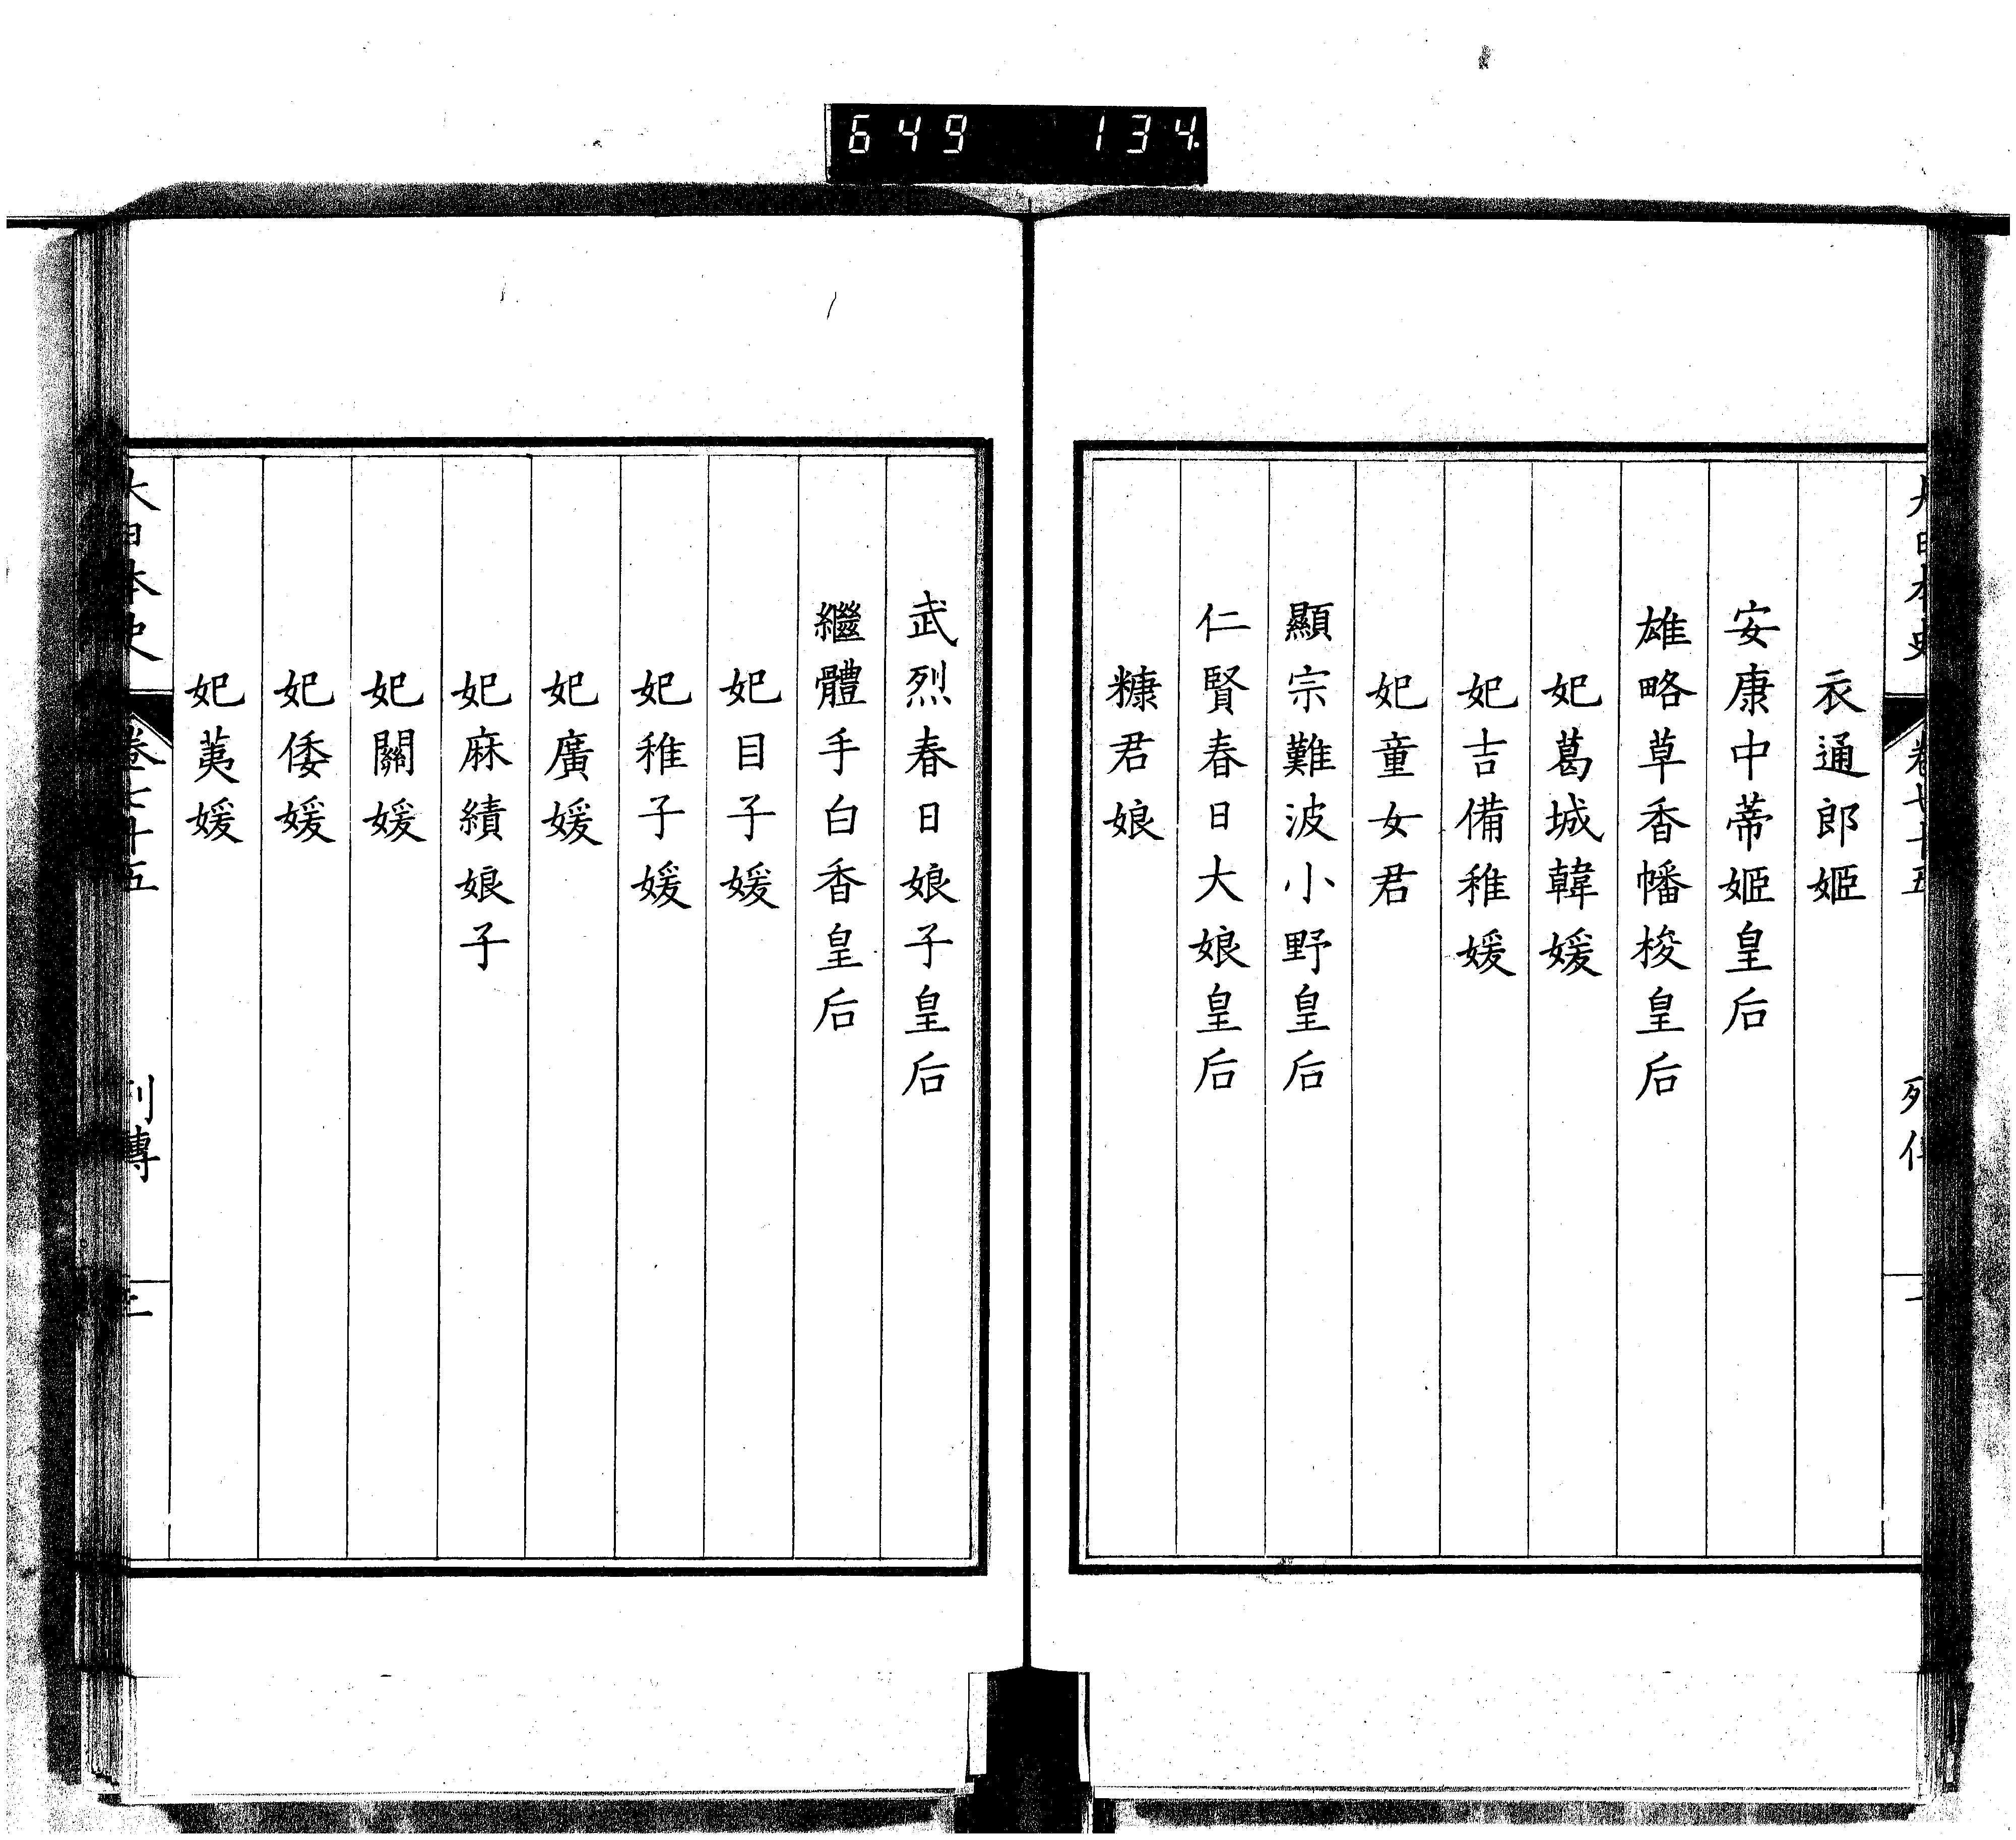 649 134
衣通郎姬
安康中蒂姬皇后
雄略草香幡梭皇后
妃葛城韓媛
妃吉備稚媛
妃童女君
顯宗難波小野皇后
仁賢春日大娘皇后
糠君娘
武烈春日娘子皇后
繼體手白香皇后
妃目子媛
妃稚子媛
妃廣媛
妃麻績娘子
妃關媛
妃倭媛
妃荑媛
大日本史 卷七十五 列傳 三